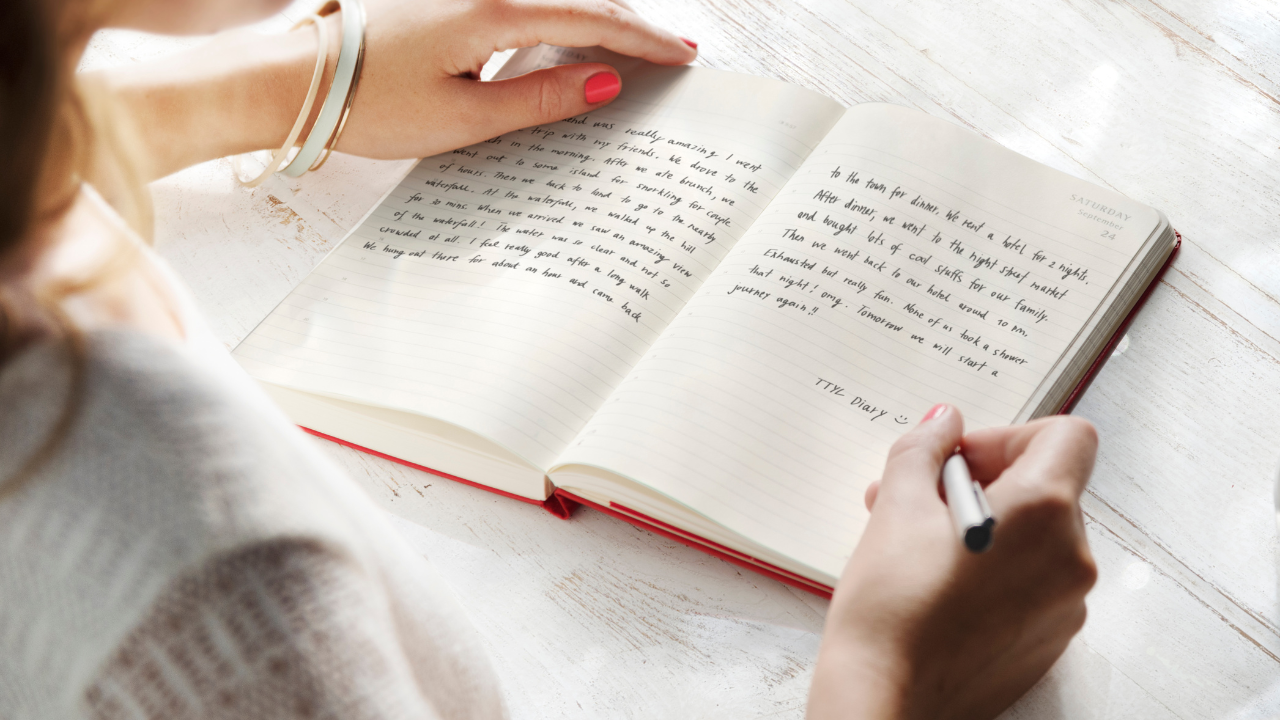 and was really amazing. I went
trip with my friends. We drove to the
in the morning. After we ate brunch, we
went out to some island for snorkling for couple
of hours. Then we back to land to go to the nearby
waterfall. At the waterfall, we walked up the hill
for 30 mins. When we arrived we saw an amazing view
of the waterfall! The water was so clear and not so
crowded at all. I feel really good after a long walk
We hung out there for about an hour and came back
SATURDAY
September
24
to the town for dinner. We rent a hotel for 2 nights.
After dinner, we went to the night street market
and bought lots of cool stuffs for our family.
Then we went back to our hotel around 10 pm.
Exhausted but really fun. None of us took a shower
that night! omg. Tomorrow we will start a
journey again!!
TTYL Diary :)